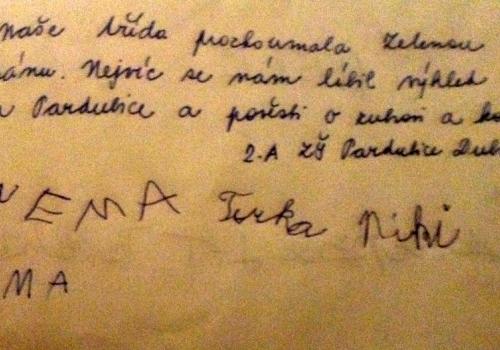 naše třída prozkoumala Zelenou
bránu. Nejvíc se nám líbil výhled
Pardubice a pověsti o zubovi a
2.A ZŠ Pardubice Dub
EMA Terka Niki
MA